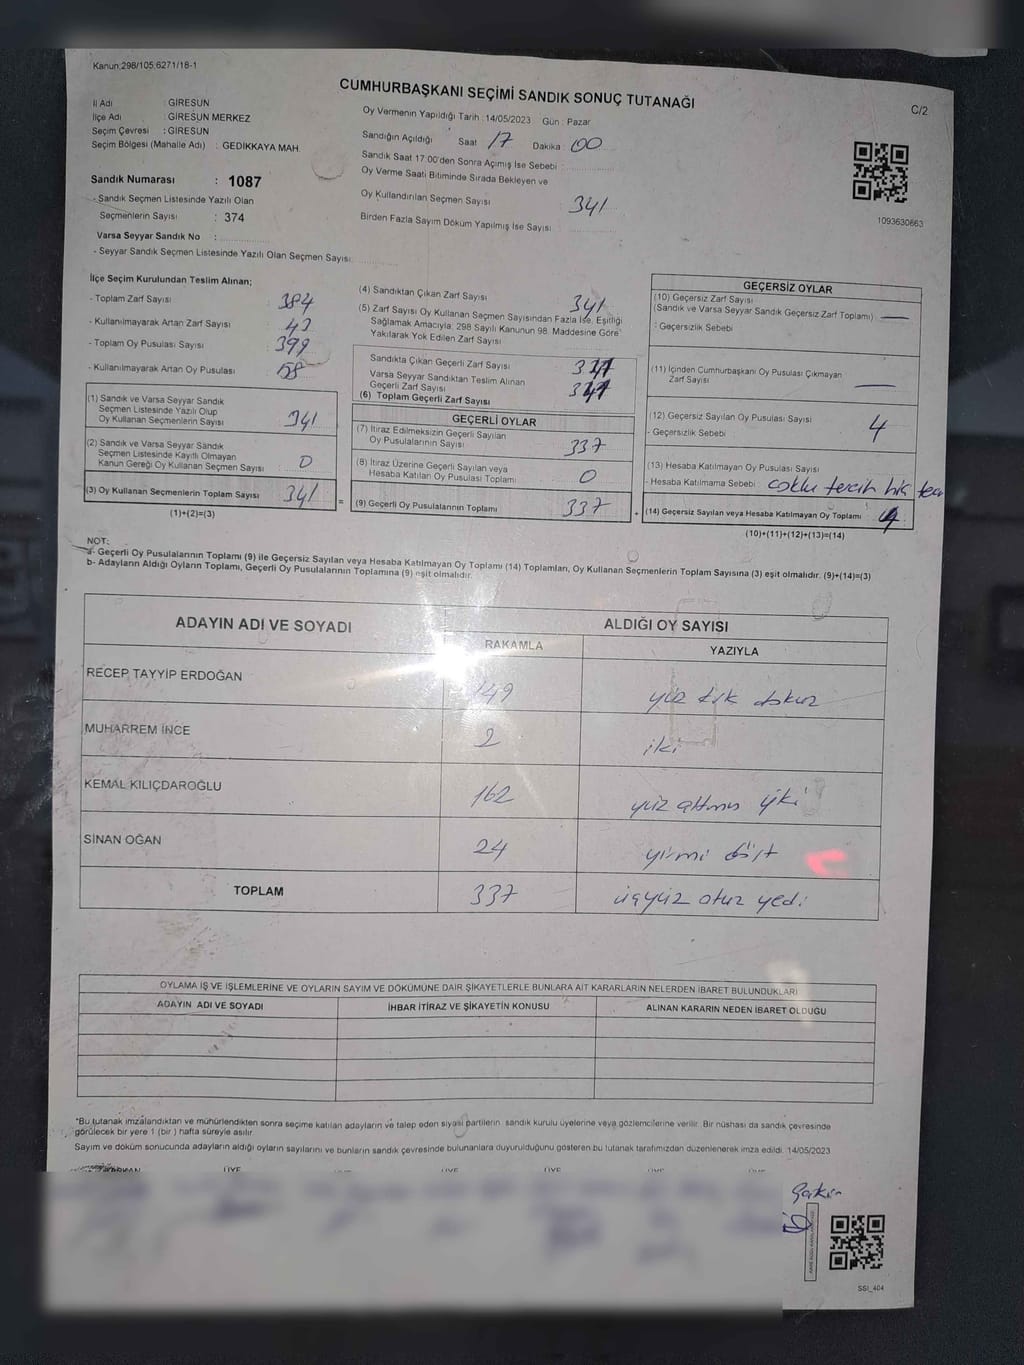 Kanun:298/105,6271/18-1
CUMHURBAŞKANI SEÇİMİ SANDIK SONUÇ TUTANAĞI
C/2
İl Adı : GİRESUN
İlçe Adı : GİRESUN MERKEZ
Seçim Çevresi : GİRESUN
Seçim Bölgesi (Mahalle Adı) : GEDİKKAYA MAH.
Oy Vermenin Yapıldığı Tarih : 14/05/2023 Gün : Pazar
Sandığın Açıldığı Saat 17 Dakika : 00
Sandık Saat 17:00'den Sonra Açımış İse Sebebi :
Oy Verme Saati Bitiminde Sırada Bekleyen ve
Oy Kullandırılan Seçmen Sayısı 341
Birden Fazla Sayım Döküm Yapılmış İse Sayısı
1093630663
Sandık Numarası : 1087
- Sandık Seçmen Listesinde Yazılı Olan
Seçmenlerin Sayısı : 374
Varsa Seyyar Sandık No :
- Seyyar Sandık Seçmen Listesinde Yazılı Olan Seçmen Sayısı:
İlçe Seçim Kurulundan Teslim Alınan;
- Toplam Zarf Sayısı 384
- Kullanılmayarak Artan Zarf Sayısı
- Toplam Oy Pusulası Sayısı 399
- Kullanılmayarak Artan Oy Pusulası 58
(1) Sandık ve Varsa Seyyar Sandık
Seçmen Listesinde Yazılı Olup
Oy Kullanan Seçmenlerin Sayısı 341
(2) Sandık ve Varsa Seyyar Sandık
Seçmen Listesinde Kayıtlı Olmayan
Kanun Gereği Oy Kullanan Seçmen Sayısı 0
(3) Oy Kullanan Seçmenlerin Toplam Sayısı 341
(1)+(2)=(3)
=
(4) Sandıktan Çıkan Zarf Sayısı 341
(5) Zarf Sayısı Oy Kullanan Seçmen Sayısından Fazla İse, Eşitliği
Sağlamak Amacıyla; 298 Sayılı Kanunun 98. Maddesine Göre
Yakılarak Yok Edilen Zarf Sayısı
Sandıkta Çıkan Geçerli Zarf Sayısı
Varsa Seyyar Sandıktan Teslim Alınan
Geçerli Zarf Sayısı
(6) Toplam Geçerli Zarf Sayısı
GEÇERLİ OYLAR
(7) İtiraz Edilmeksizin Geçerli Sayılan
Oy Pusulalarının Sayısı 337
(8) İtiraz Üzerine Geçerli Sayılan veya
Hesaba Katılan Oy Pusulası Toplamı 0
(9) Geçerli Oy Pusulalarının Toplamı 337
+
GEÇERSİZ OYLAR
(10) Geçersiz Zarf Sayısı
(Sandık ve Varsa Seyyar Sandık Geçersiz Zarf Toplamı) —
- Geçersizlik Sebebi
(11) İçinden Cumhurbaşkanı Oy Pusulası Çıkmayan
Zarf Sayısı —
(12) Geçersiz Sayılan Oy Pusulası Sayısı 4
- Geçersizlik Sebebi
(13) Hesaba Katılmayan Oy Pusulası Sayısı
- Hesaba Katılmama Sebebi : çoklu tercih hiç
(14) Geçersiz Sayılan veya Hesaba Katılmayan Oy Toplamı 4
(10)+(11)+(12)+(13)=(14)
NOT:
a- Geçerli Oy Pusulalarının Toplamı (9) ile Geçersiz Sayılan veya Hesaba Katılmayan Oy Toplamı (14) Toplamları, Oy Kullanan Seçmenlerin Toplam Sayısına (3) eşit olmalıdır. (9)+(14)=(3)
b- Adayların Aldığı Oyların Toplamı, Geçerli Oy Pusulalarının Toplamına (9) eşit olmalıdır.
ADAYIN ADI VE SOYADI ALDIĞI OY SAYISI
RAKAMLA YAZIYLA
RECEP TAYYİP ERDOĞAN 149 yüz kırk dokuz
MUHARREM İNCE 2 iki
KEMAL KILIÇDAROĞLU 162 yüz altmış iki
SİNAN OĞAN 24 yirmi dört
TOPLAM 337 üçyüz otuz yedi
OYLAMA İŞ VE İŞLEMLERİNE VE OYLARIN SAYIM VE DÖKÜMÜNE DAİR ŞİKAYETLERLE BUNLARA AİT KARARLARIN NELERDEN İBARET BULUNDUKLARI
ADAYIN ADI VE SOYADI İHBAR İTİRAZ VE ŞİKAYETİN KONUSU ALINAN KARARIN NEDEN İBARET OLDUĞU
*Bu tutanak imzalandıktan ve mühürlendikten sonra seçime katılan adayların ve talep eden siyasi partilerin sandık kurulu üyelerine veya gözlemcilerine verilir. Bir nüshası da sandık çevresinde
görülecek bir yere 1 (bir ) hafta süreyle asılır.
Sayım ve döküm sonucunda adayların aldığı oyların sayılarını ve bunların sandık çevresinde bulunanlara duyurulduğunu gösteren bu tutanak tarafımızdan düzenlenerek imza edildi. 14/05/2023
ÜYE ÜYE ÜYE ÜYE ÜYE
SSİ_404